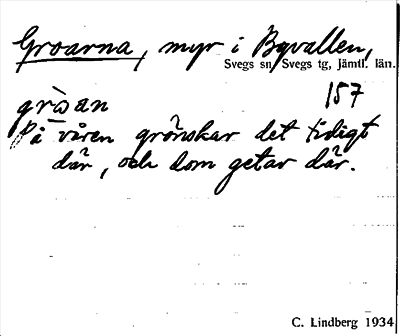 Groarna, myr i Byvallen,
Svegs sn, Svegs tg, Jämtl. län.
157
På våren grönskar det tidigt
där, och dom getar där.
C. Lindberg 1934